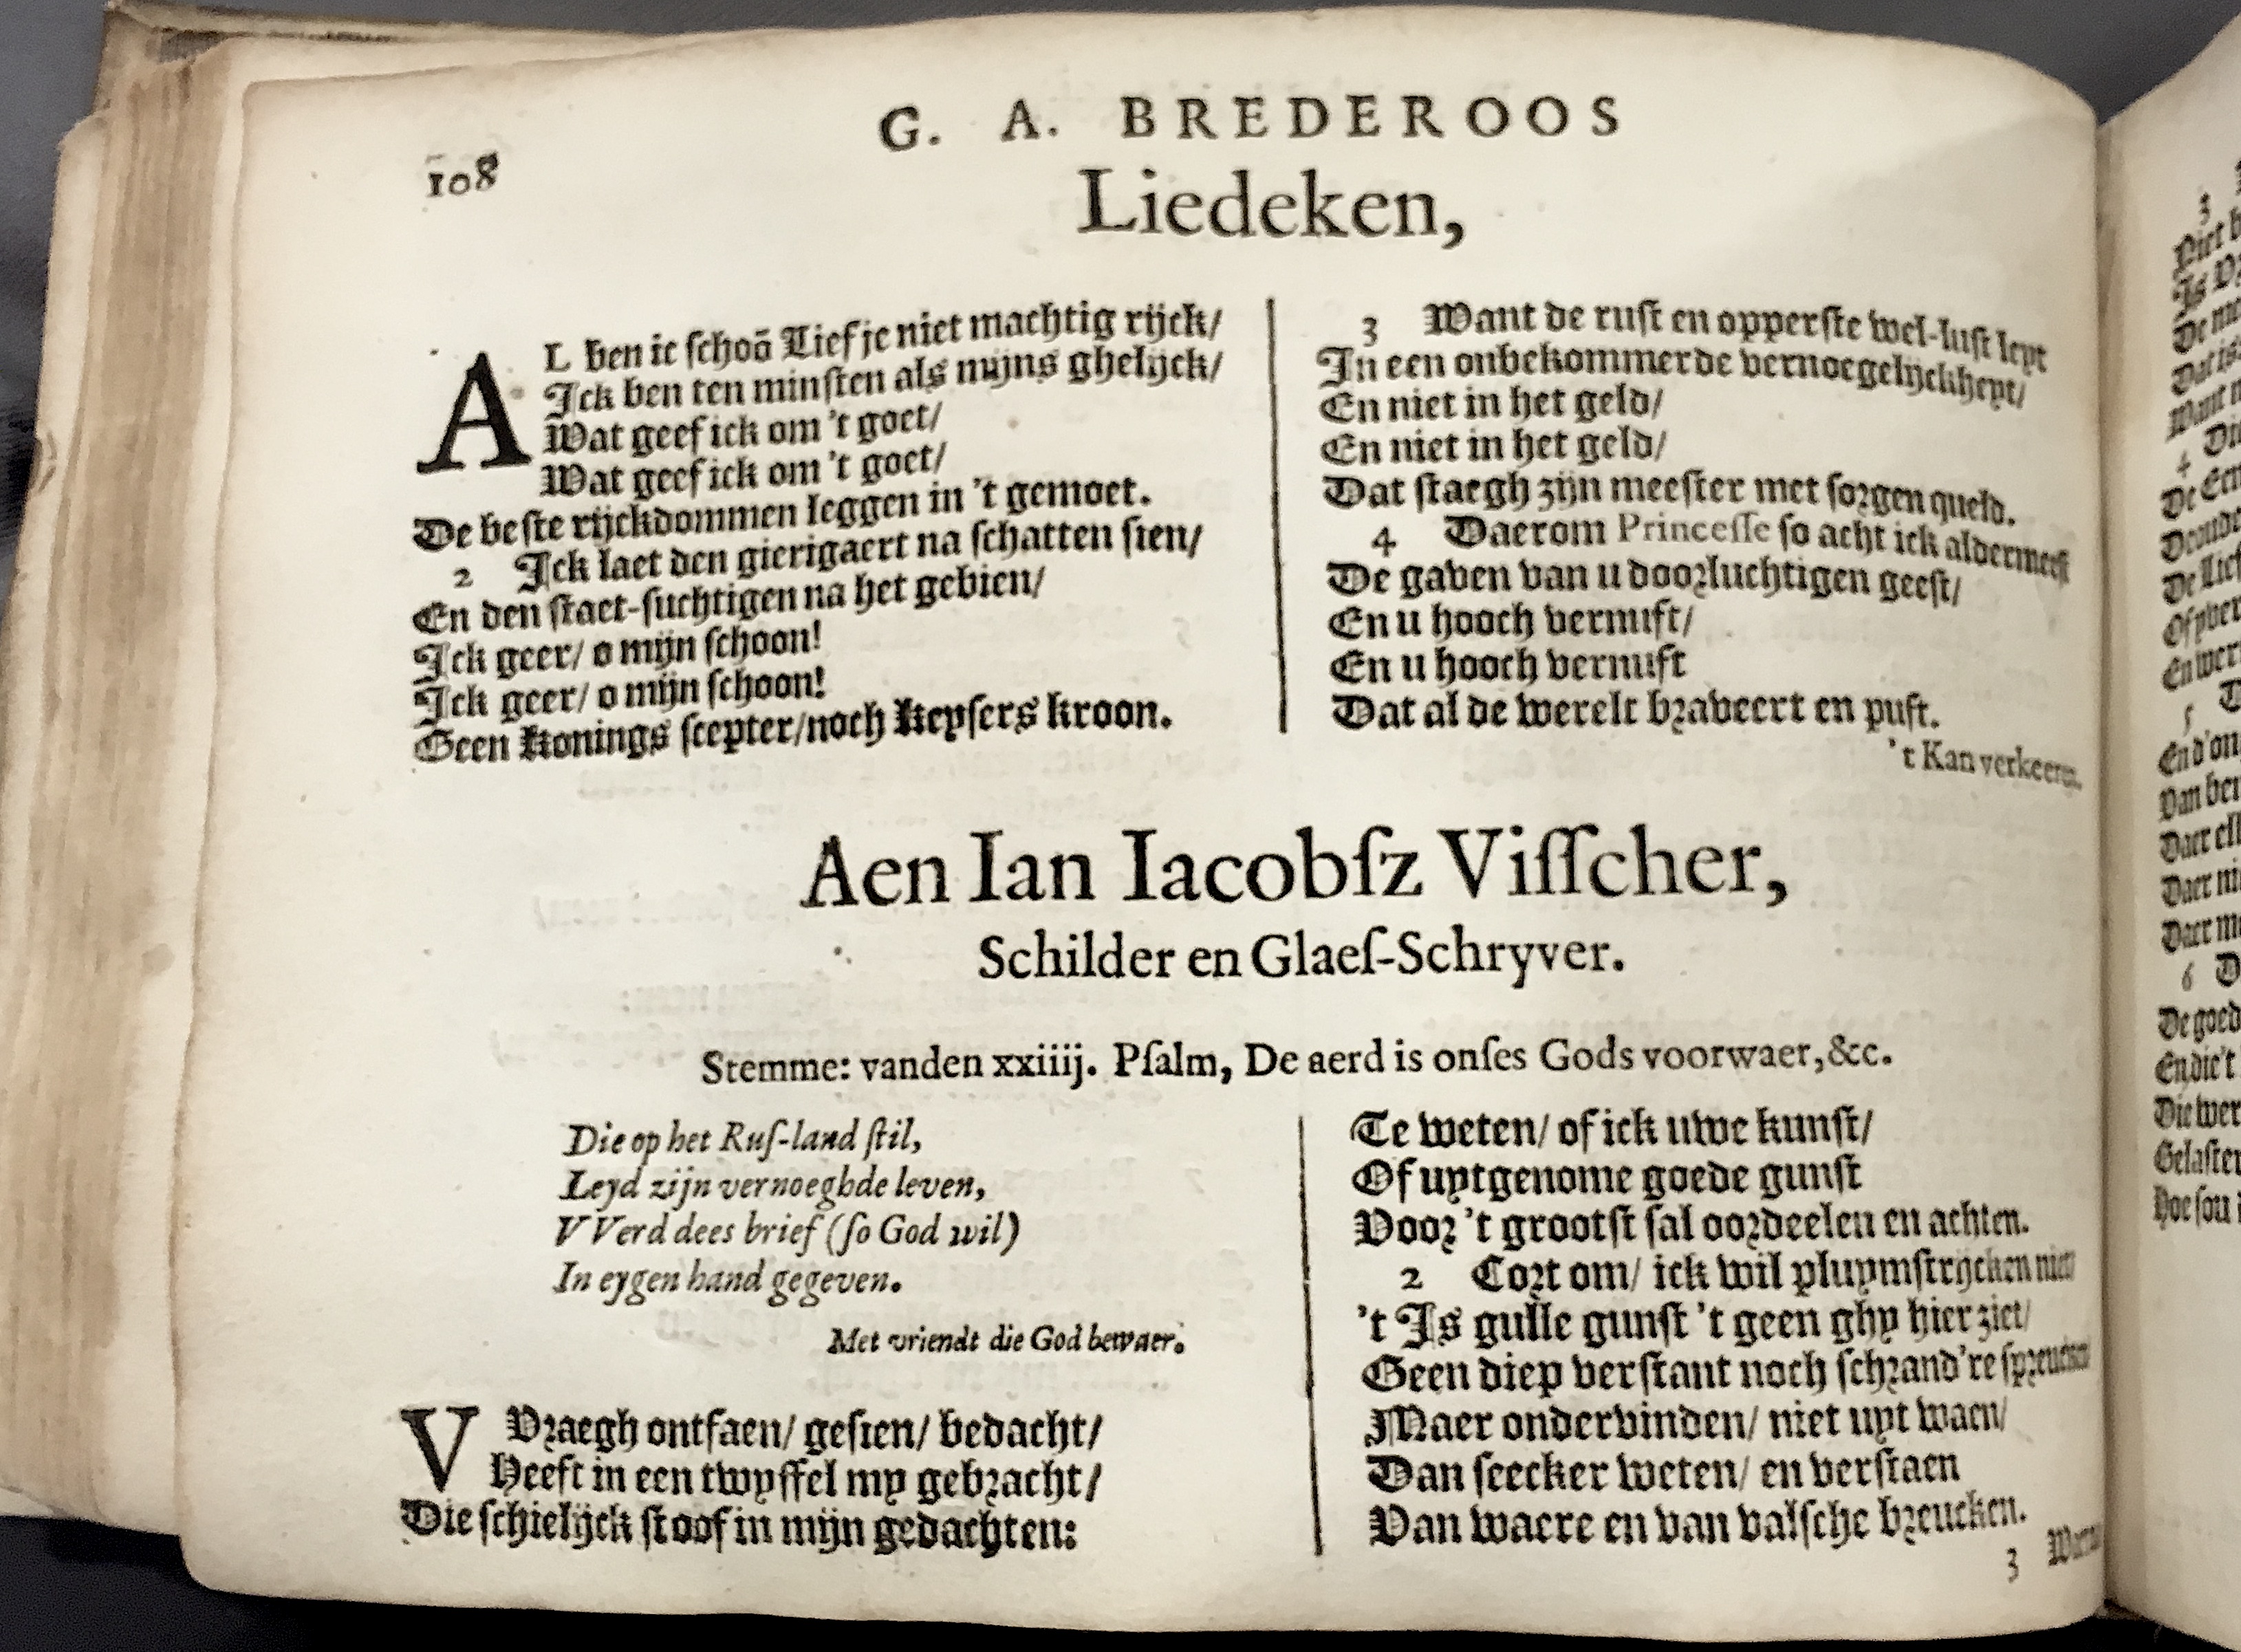 G. A. BREDEROOS
108
Liedeken,
AL ben ic schoõ Liefje niet machtig rijck/
Ick ben ten minsten als mijns ghelijck/
Wat geef ick om 't goet/
Wat geef ick om 't goet/
De beste rijckdommen leggen in 't gemoet.
2 Ick laet den gierigaert na schatten sien/
En den staet-suchtigen na het gebien/
Ick geer/ o mijn schoon!
Ick geer/ o mijn schoon!
Geen Konings scepter/noch Keysers kroon.
3 Want de rust en opperste wel-lust leyt
In een onbekommerde vernoegelijckheyt/
En niet in het geld/
En niet in het geld/
Dat staegh zijn meester met sorgen queld.
4 Daerom Princesse so acht ick aldermeest
De gaven van u doorluchtigen geest/
En u hooch vernuft/
En u hooch vernuft
Dat al de werelt braveert en puft.
't Kan verkeeren.
Aen Ian Iacobsz Visscher,
Schilder en Glaes-Schryver.
Stemme: vanden xxiiij. Psalm, De aerd is onses Gods voorwaer,&c.
Die op het Rus-land stil,
Leyd zijn vernoeghde leven,
VVerd dees brief (so God wil)
In eygen hand gegeven.
Met vriendt die God bewaer.
V Vraegh ontfaen/ gesien/ bedacht/
Heeft in een twyffel my gebracht/
Die schielijck stoof in mijn gedachten:
Te weten/ of ick uwe kunst/
Of uytgenome goede gunst
Voor 't grootst sal oordeelen en achten.
2 Cort om/ ick wil pluymstrijcken niet
't Is gulle gunst 't geen ghy hier ziet/
Geen diep verstant noch schrand're spreucken
Maer ondervinden/ niet uyt waen/
Dan seecker weten/ en verstaen
Van waere en van valsche breucken.
3